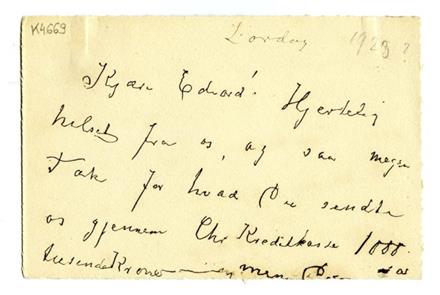 K4669
Lordag 1923?
Kjære Edvard! Hjertelig
hilset fra os, og saa megen
Tak for hvad De sendte
os gjennem Chr Kreditkasse 1000
tusende Kroner men